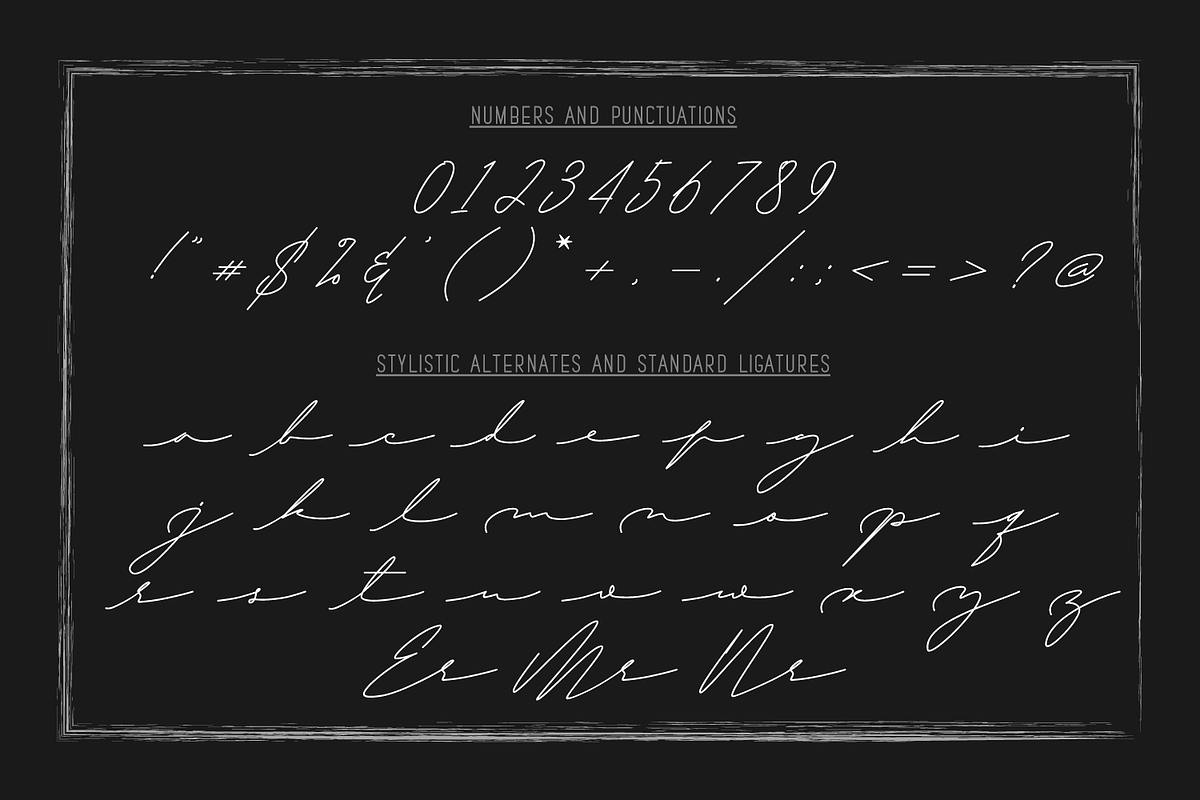 NUMBERS AND PUNCTUATIONS
0123456789
! " # $ % & ' ( ) * + , - . / : ; < = > ? @
STYLISTIC ALTERNATES AND STANDARD LIGATURES
a b c d e p g h i
j k l m n o p q
r s t u v w x y z
Er Mr Nr